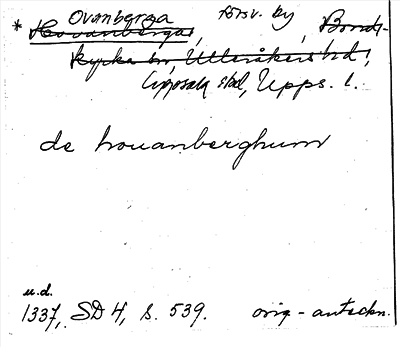 Ovanberga försv. by
* Hovanberga, Bond-
kyrka sn, Ulleråkers hd,
Uppsala stad, Upps. l.
de houanberghum
u.d.
1337, SD 4, s. 539. orig-anteckn.